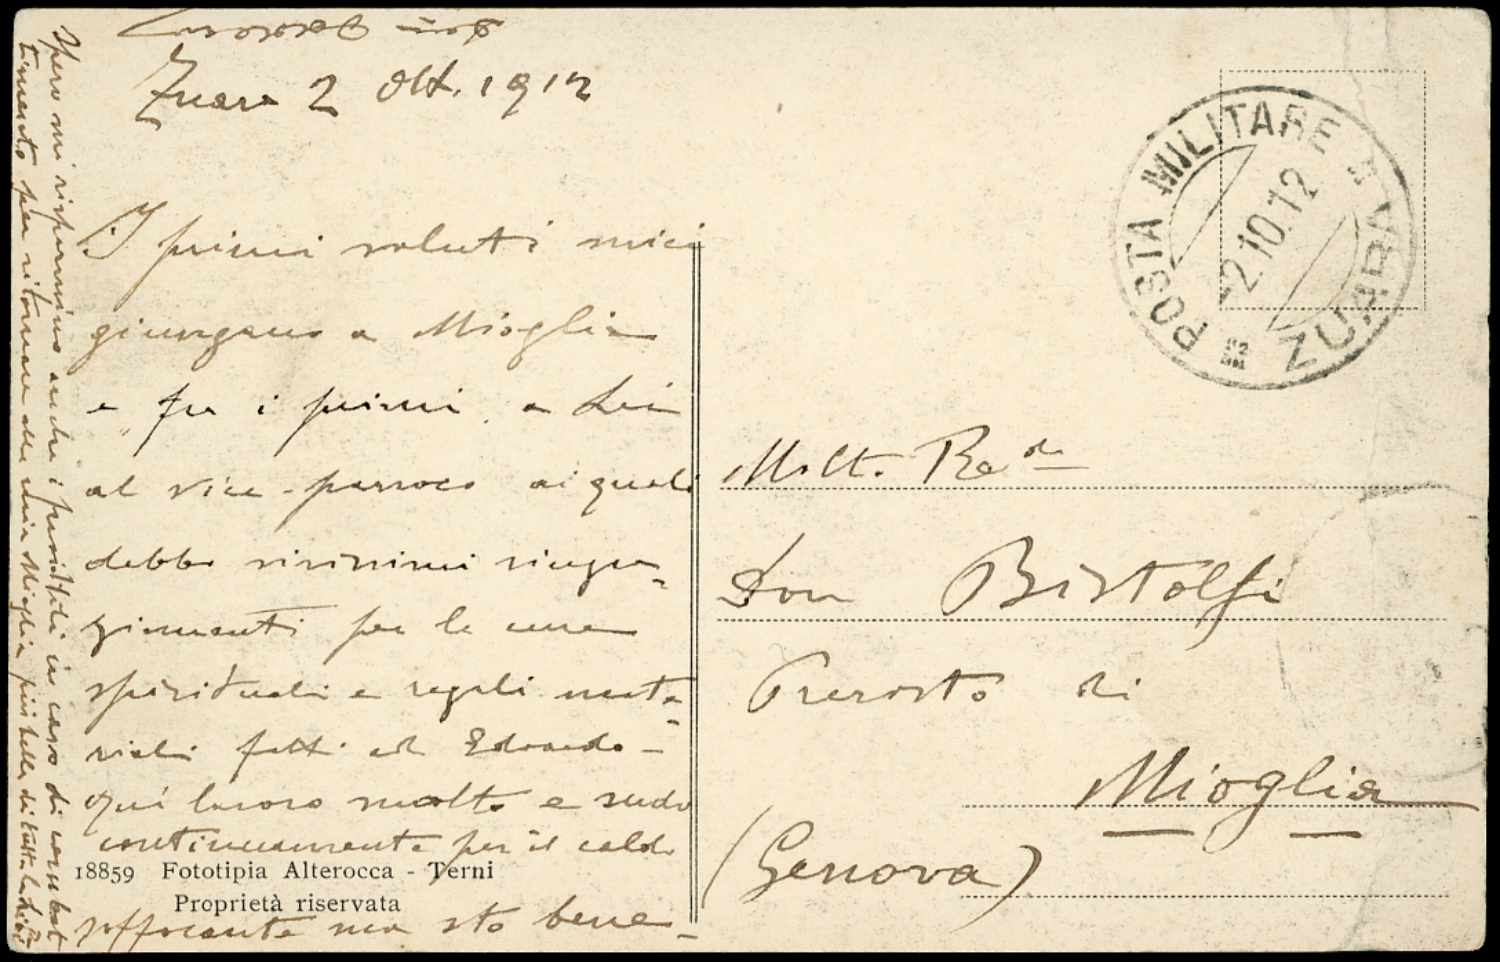 Zuara 2 Ott. 1912
I primi saluti miei
giungano a Mioglia
e fra i primi a Lei
al vice-parroco ai quali
debbo vivissimi ringra-
ziamenti per le cure
spirituali e regali mate-
riali fatti ad Edoardo-
qui lavoro molto e sudo
continuamente per il caldo
soffocante ma sto bene-
Spero mi risparmino anche i proiettili in caso di combat
timento per ritornare alla mia Mioglia più bella di tutta la
18859 Fototipia Alterocca - Terni
Proprietà riservata
POSTA MILITARE
2.10.12
ZUARA
Molt. Rev.do
Don Bistolfi
Prevosto di
Mioglia
(Genova)